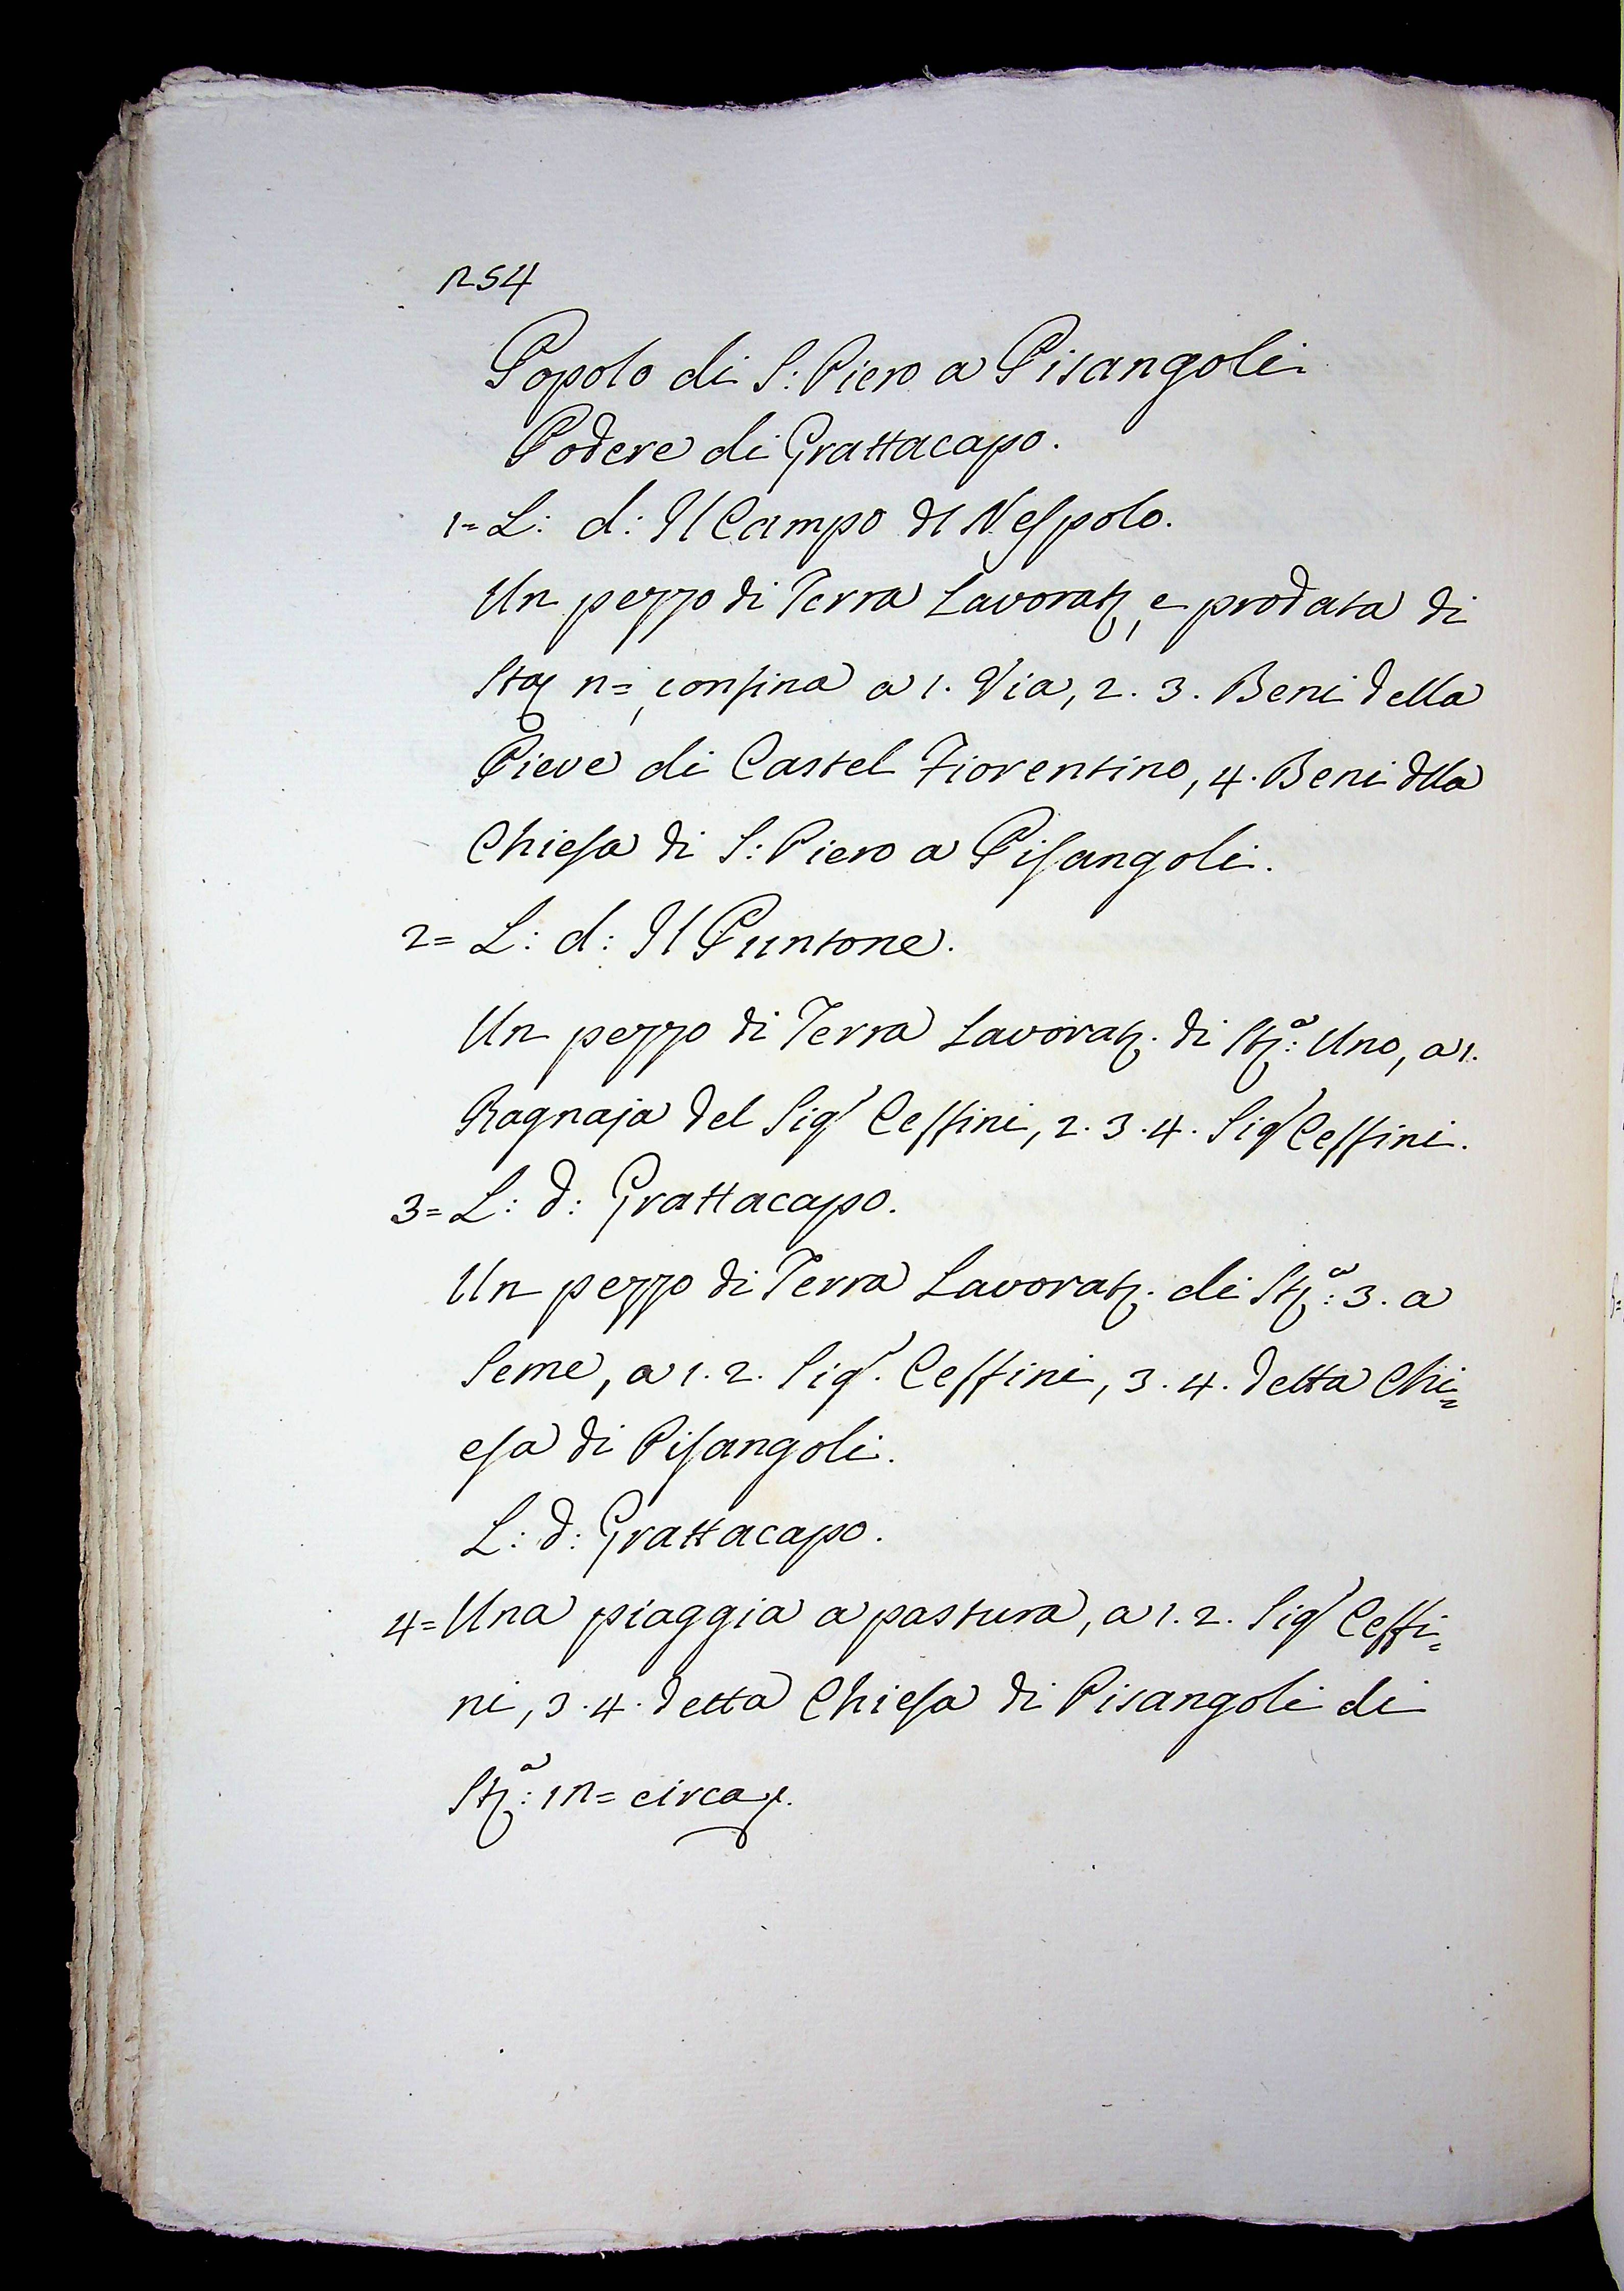 254
Popolo di S: Piero a Pisangoli
Podere di Grattacapo.
1= L: d: Il Campo dl Nespolo.
Un pezzo di Terra Lavorat, e prodata di
confina a 1. Via, 2. 3. Beni della
Pieve di Castel Fiorentino, 4. Beni dlla
Chiesa di S: Piero a Pisangoli.
2= L: d: Il Puntone.
Un pezzo di Terra Lavorat. di St.ª: Uno, a 1.
Ragnaja del Sig.r Ceffini, 2. 3. 4. Sig.r Ceffini.
3= L: d: Grattacapo.
Un pezzo di Terra Lavorat. di St.ª: 3. a
Seme, a 1. 2. Sig.r Ceffini, 3. 4. detta Chi=
esa di Pisangoli.
L: d: Grattacapo.
4= Una piaggia a pastura, a 1. 2. Sig.r Ceffi=
ni, 3. 4. detta Chiesa di Pisangoli di
St.ª: 12= circa.